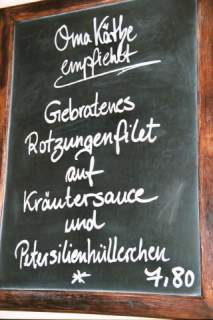 Oma Käthe
empfiehlt
Gebratenes
Rotzungenfilet
auf
Kräutersauce
und
Petersilienhüllerchen
* 7,80